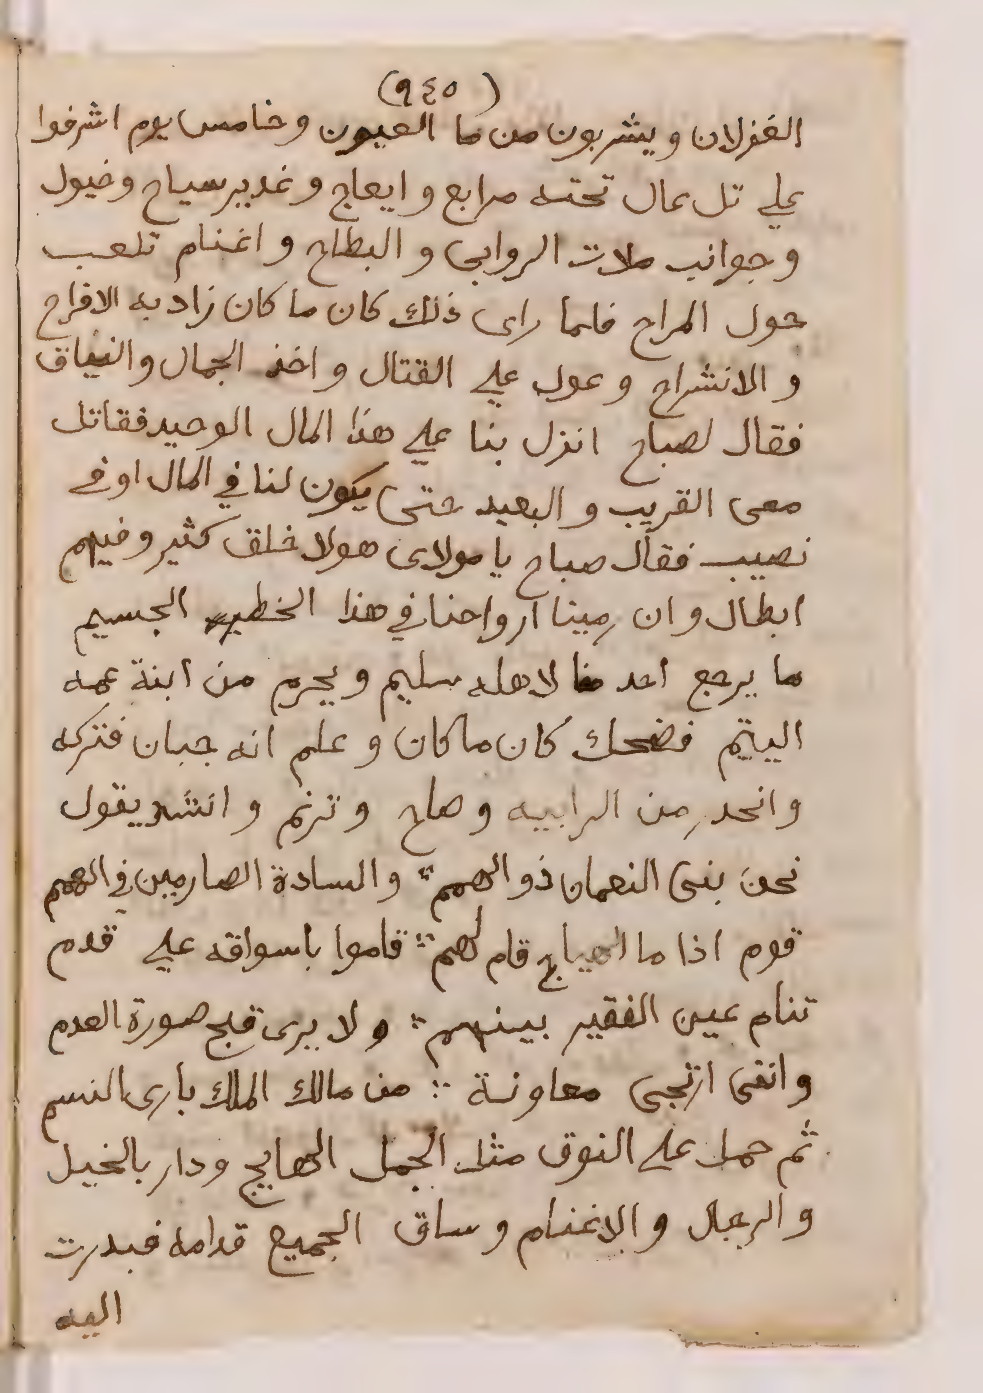 (٩٤٥)
الغزلان ويشربون من ما العيون وخامس يوم اشرفوا
علي تل عال تحته مرابع وايعاج وغدير سياح وخيول
وجوانب ملات الروابي والبطاح واغنام تلعب
حول المراح فلما راى ذلك كان ما كان زاد به الافراح
والانشراح وعول علي القتال واخذ الجمال والنياق
فقال لصباح انزل بنا علي هذا المال الوحيد فقاتل
معى القريب والبعيد حتى يكون لنا في المال اوفى
نصيب فقال صباح يا مولاى هولا خلق كثير وفيهم
ابطال وان رمينا ارواحنا في هذا الخطير الجسيم
ما يرجع احد منا لاهله سليم ويحرم من ابنة عمه
اليتيم فضحك كان ما كان وعلم انه جبان فتركه
وانحدر من الرابيه وصاح وترنم وانشد يقول
نحن بنى النعمان ذو الهمم ؞ والسادة الصارمين في الهمم
قوم اذا ما الهياج قام لهم ؞ قاموا باسواقه علي قدم
تنام عين الفقير بينهم ؞ ولا يرى قبح صورة العدم
وانفى ارتجى معاونة ؞ من مالك الملك بارى النسم
ثم حمل علي النوق مثل الجمل الهايج ودار بالخيل
والرجال والاغنام وساق الجميع قدامه فبدرت
اليه